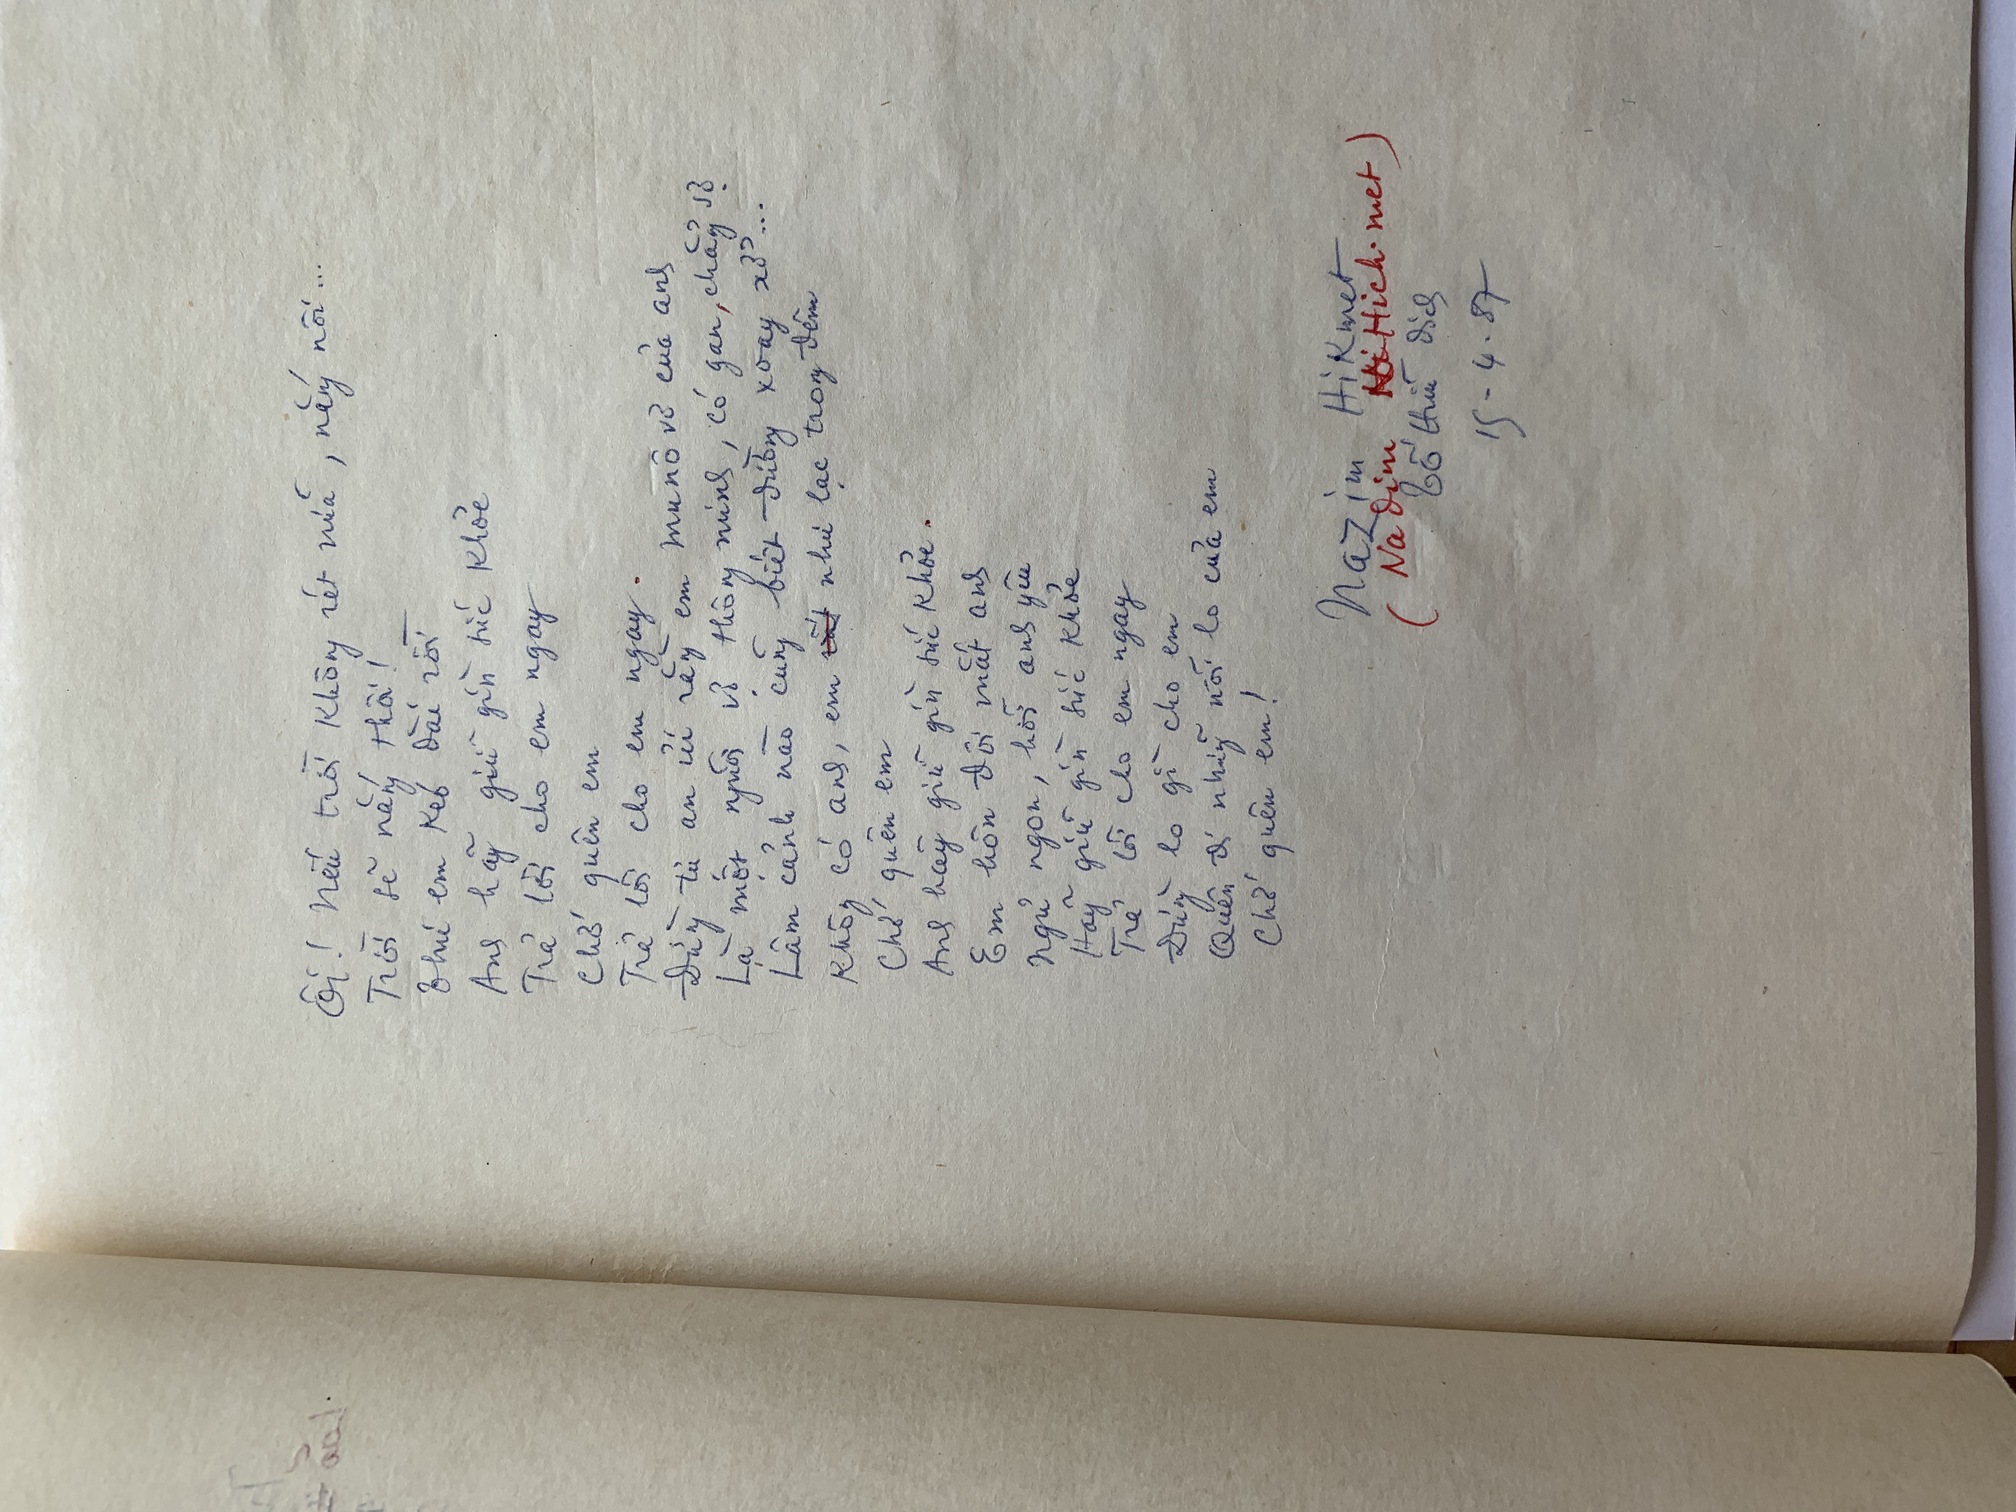 Ôi! Nếu trời không rét nữa, nắng nôi...
Trời sẽ nắng thôi!
Như em kéo dài rồi
Anh hãy giữ gìn sức khỏe
Trả lời cho em ngay
Chớ quên em
Trả lời cho em ngay.
Đừng tự an ủi rằng em Munô vợ của anh
Là một người vợ thông minh, có gan, chẳng sợ
Lâm cảnh nào cũng biết đường xoay xở...
Không có anh, em như lạc trong đêm
Chớ quên em
Anh hãy giữ gìn sức khỏe.
Em hôn đôi mắt anh
Ngủ ngon, hỡi anh yêu
Hãy giữ gìn sức khỏe
Trả lời cho em ngay
Đừng lo gì cho em
Quên đi những nỗi lo của em
Chớ quên em!
Nazim Hikmet
(Na dim Hich.met)
Tố Hữu dịch
15-4-87